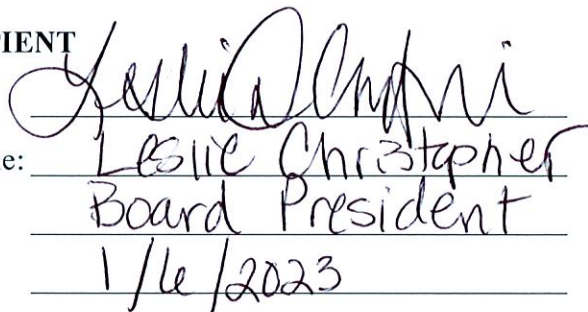 PIENT
e: Leslie Christopher
Board President
1/6/2023